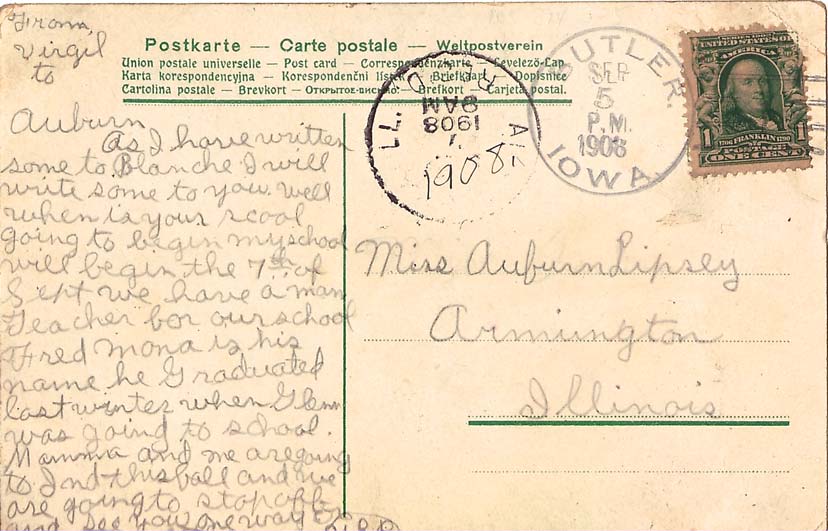 From
Virgil
to
Postkarte — Carte postale — Weltpostverein
Union postale universelle — Post card — Correspondenzkarte — Levelező-Lap
Karta korespondencyjna — Korespondenční lístek — Brefkaart — Dopisnice
Cartolina postale — Brevkort — Открытое письмо — Brefkort — Tarjeta postal.
BUTLER.
SEP
5
P.M.
1908
IOWA.
REC'D
9AM
7
1908
ILL.
1908.
UNITED STATES OF
AMERICA
1
1706 FRANKLIN 1790
POSTAGE
ONE CENT
Auburn
As I have written
some to Blanche I will
write some to you. well
when is your scool
going to begin my school
will begin the 7th. of
Sept we have a man
Teacher for our school
Fred Mona is his
name he Graduated
last winter when Glenn
was going to school.
Mamma and me are going
to Ind this fall and we
are going to stop off
and see you one way
Miss Auburn Lipsey
Armington
Illinois